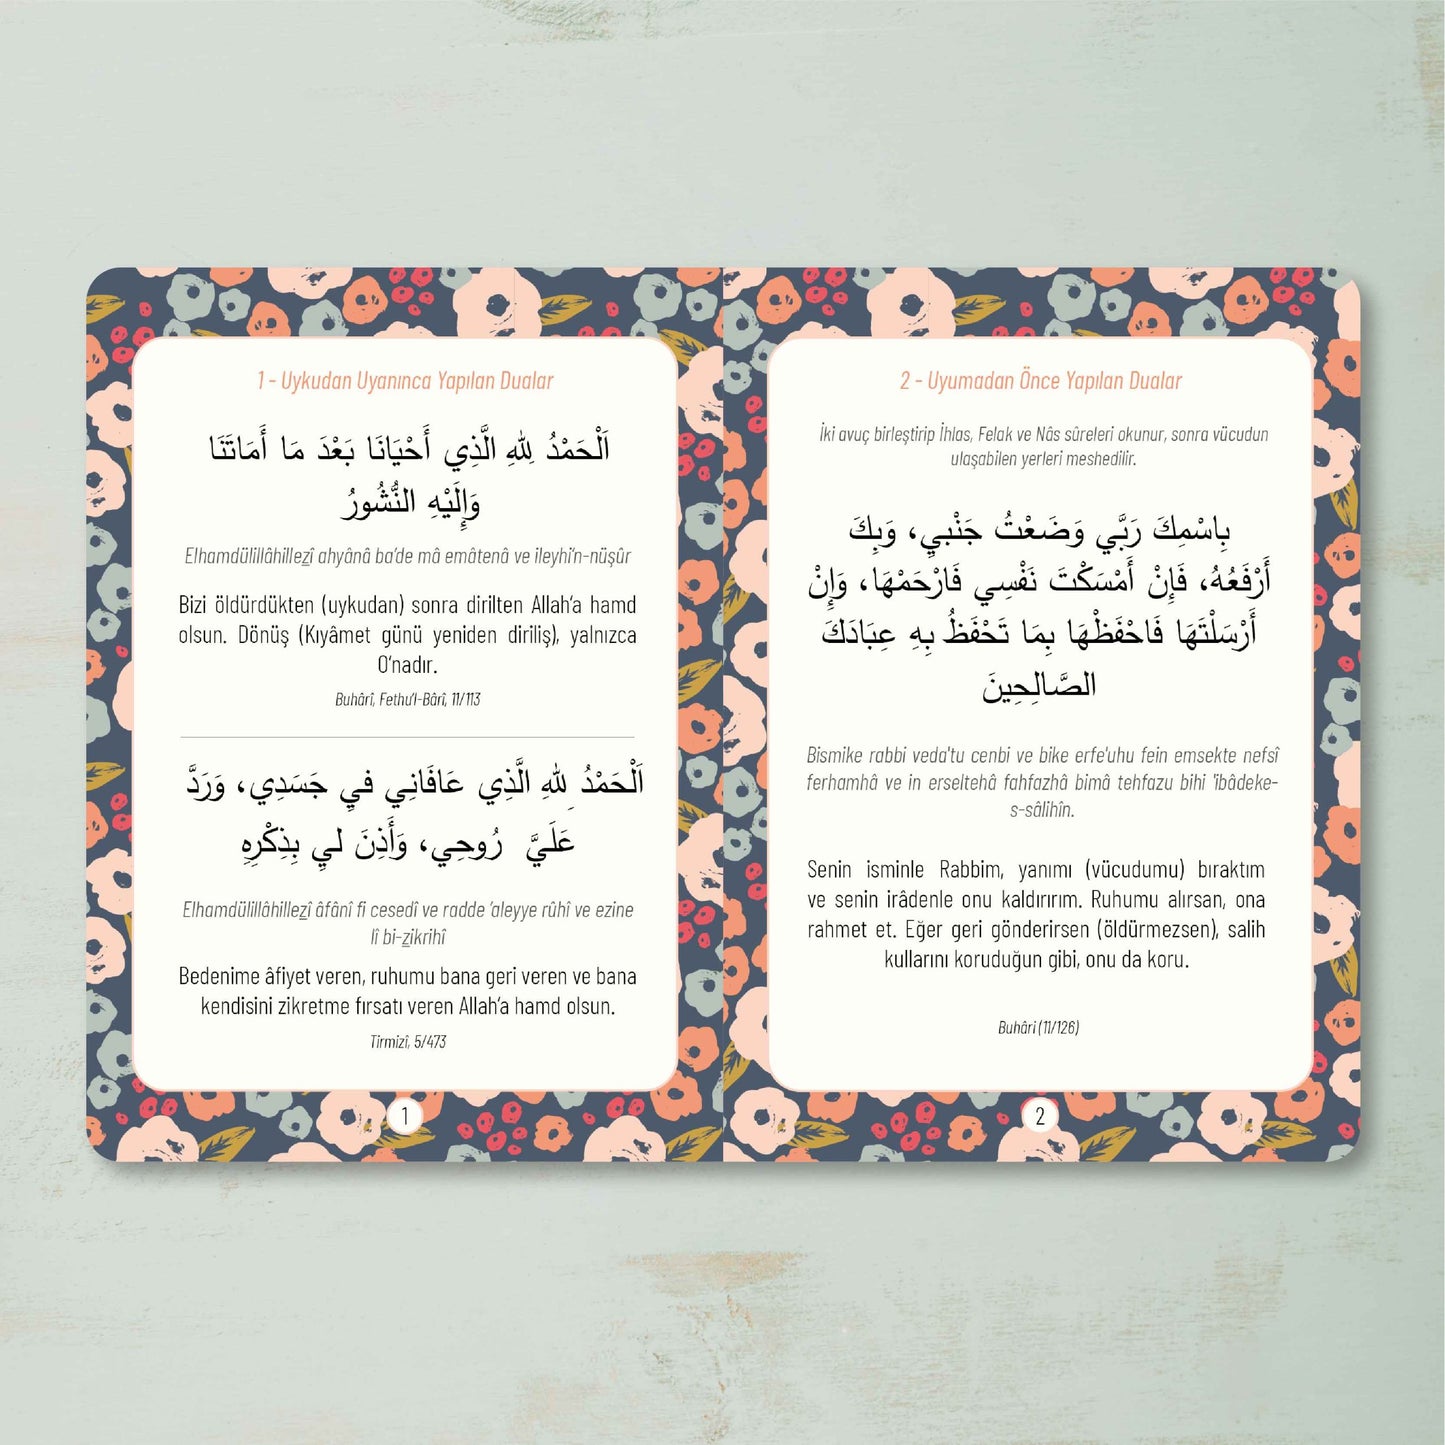 1 - Uykudan Uyanınca Yapılan Dualar
اَلْحَمْدُ لِلهِ الَّذِي أَحْيَانَا بَعْدَ مَا أَمَاتَنَا
وَإِلَيْهِ النُّشُورُ
Elhamdülillâhillezî ahyânâ ba’de mâ emâtenâ ve ileyhi’n-nüşûr
Bizi öldürdükten (uykudan) sonra dirilten Allah’a hamd
olsun. Dönüş (Kıyâmet günü yeniden diriliş), yalnızca
O’nadır.
Buhârî, Fethu’l-Bârî, 11/113
اَلْحَمْدُ لِلهِ الَّذِي عَافَانِي فيِ جَسَدِي، وَرَدَّ
عَلَيَّ رُوحِي، وَأَذِنَ ليِ بِذِكْرِهِ
Elhamdülillâhillezî âfânî fi cesedî ve radde ’aleyye rûhî ve ezine
lî bi-zikrihî
Bedenime âfiyet veren, ruhumu bana geri veren ve bana
kendisini zikretme fırsatı veren Allah’a hamd olsun.
Tirmizî, 5/473
1
2 - Uyumadan Önce Yapılan Dualar
İki avuç birleştirip İhlas, Felak ve Nâs sûreleri okunur, sonra vücudun
ulaşabilen yerleri meshedilir.
بِاسْمِكَ رَبَّي وَضَعْتُ جَنْبيِ، وَبِكَ
أَرْفَعُهُ، فَإِنْ أَمْسَكْتَ نَفْسِي فَارْحَمْهَا، وَإِنْ
أَرْسَلْتَهَا فَاحْفَظْهَا بِمَا تَحْفَظُ بِهِ عِبَادَكَ
الصَّالِحِينَ
Bismike rabbi veda'tu cenbi ve bike erfe'uhu fein emsekte nefsî
ferhamhâ ve in erseltehâ fahfazhâ bimâ tehfazu bihi 'ibâdeke-
s-sâlihîn.
Senin isminle Rabbim, yanımı (vücudumu) bıraktım
ve senin irâdenle onu kaldırırım. Ruhumu alırsan, ona
rahmet et. Eğer geri gönderirsen (öldürmezsen), salih
kullarını koruduğun gibi, onu da koru.
Buhâri (11/126)
2